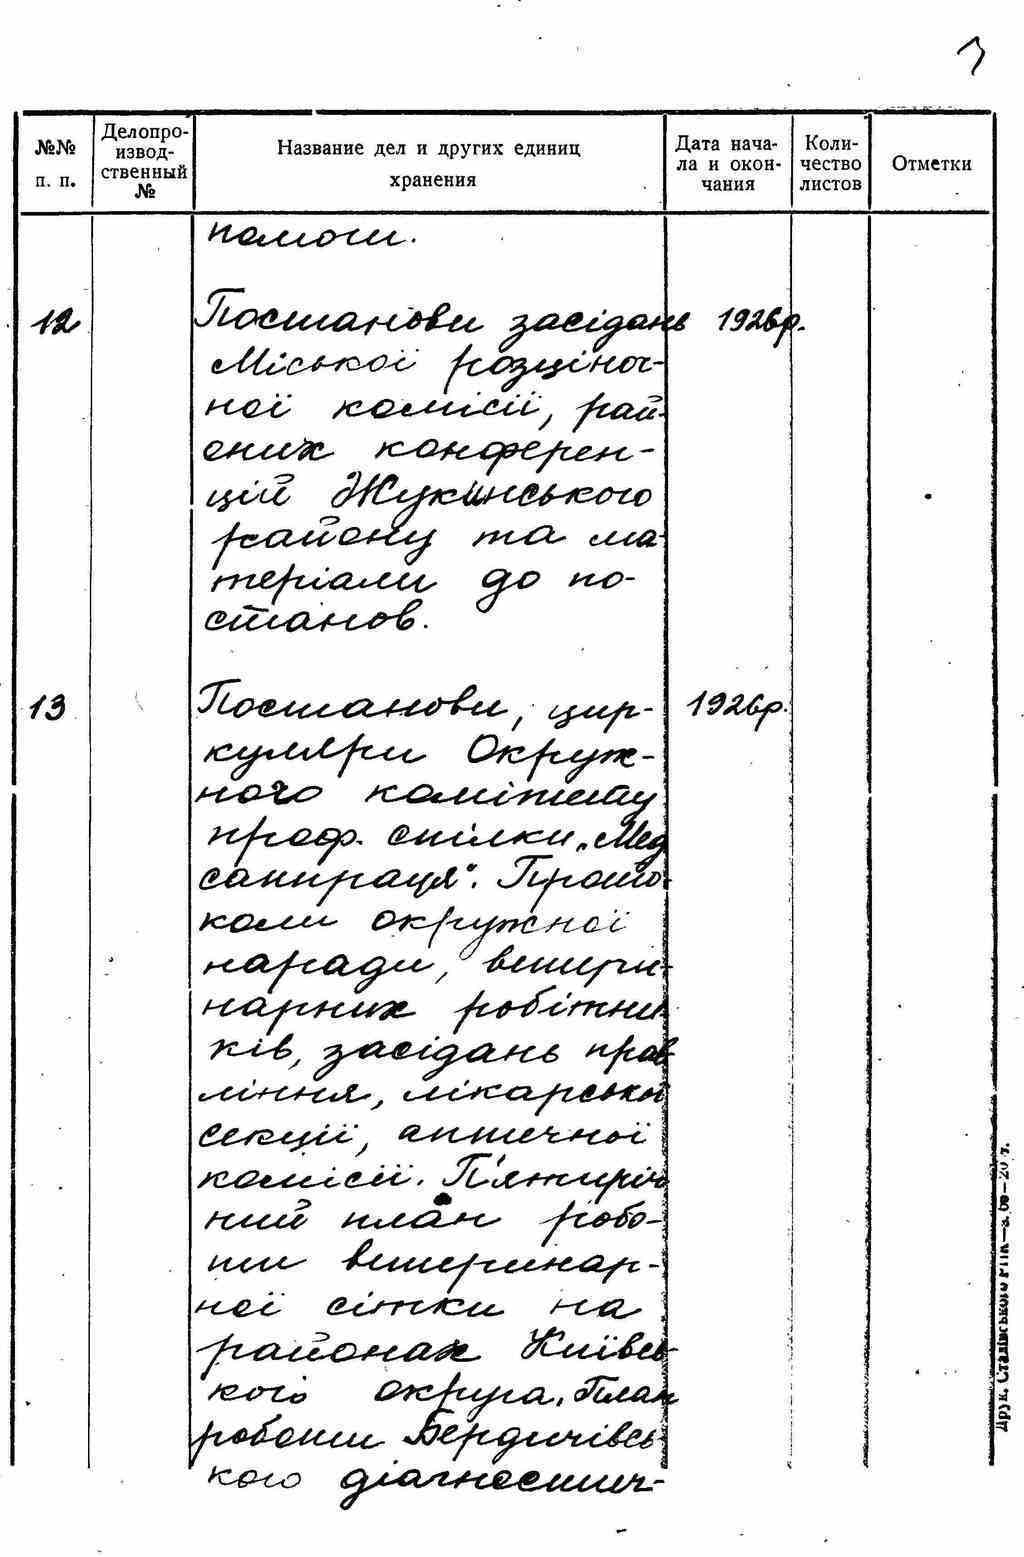 3
№№ п. п.
Делопроизвод-ственный №
Название дел и других единиц хранения
Дата нача-ла и окон-чания
Коли-чество листов
Отметки
помоги.
12 Постанови засідань 1926р.
Міської розціноч-
ної комісії, рай-
оних конферен-
цій Жукинського
району та ма-
теріали до по-
станов.
13 Постанови, цир- 1926р.
куляри Окруж-
ного комітету
проф. спілки „Мед
санпраця". Прото-
коли окружної
наради, ветери-
нарних робітни-
ків, засідань прав-
ління, лікарської
секції, аптечної
комісії. П'ятиріч
ний план робо-
ти ветеринар-
ної сітки на
районах Київсь-
кого округа. План
роботи Бердичівсь-
кого діагностич-